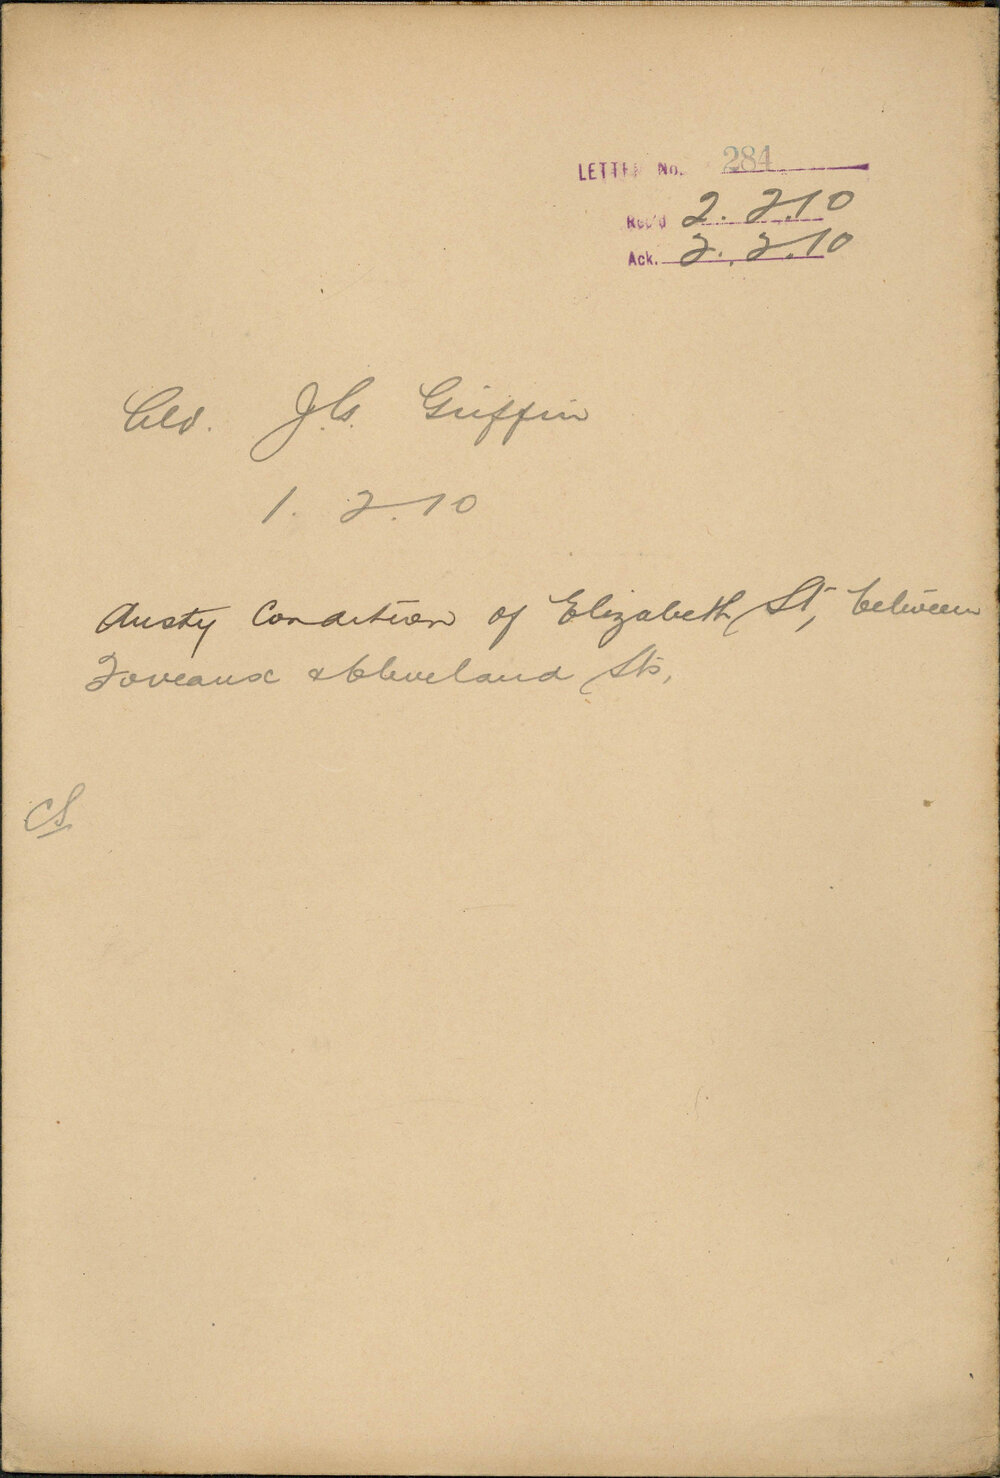 LETTER No. 284
Rec'd 2.2.10
Ack. 2.2.10
Ald. J.C. Griffin
1.2.10
dusty condition of Elizabeth St, between
Foveaux & Cleveland Sts,
CS